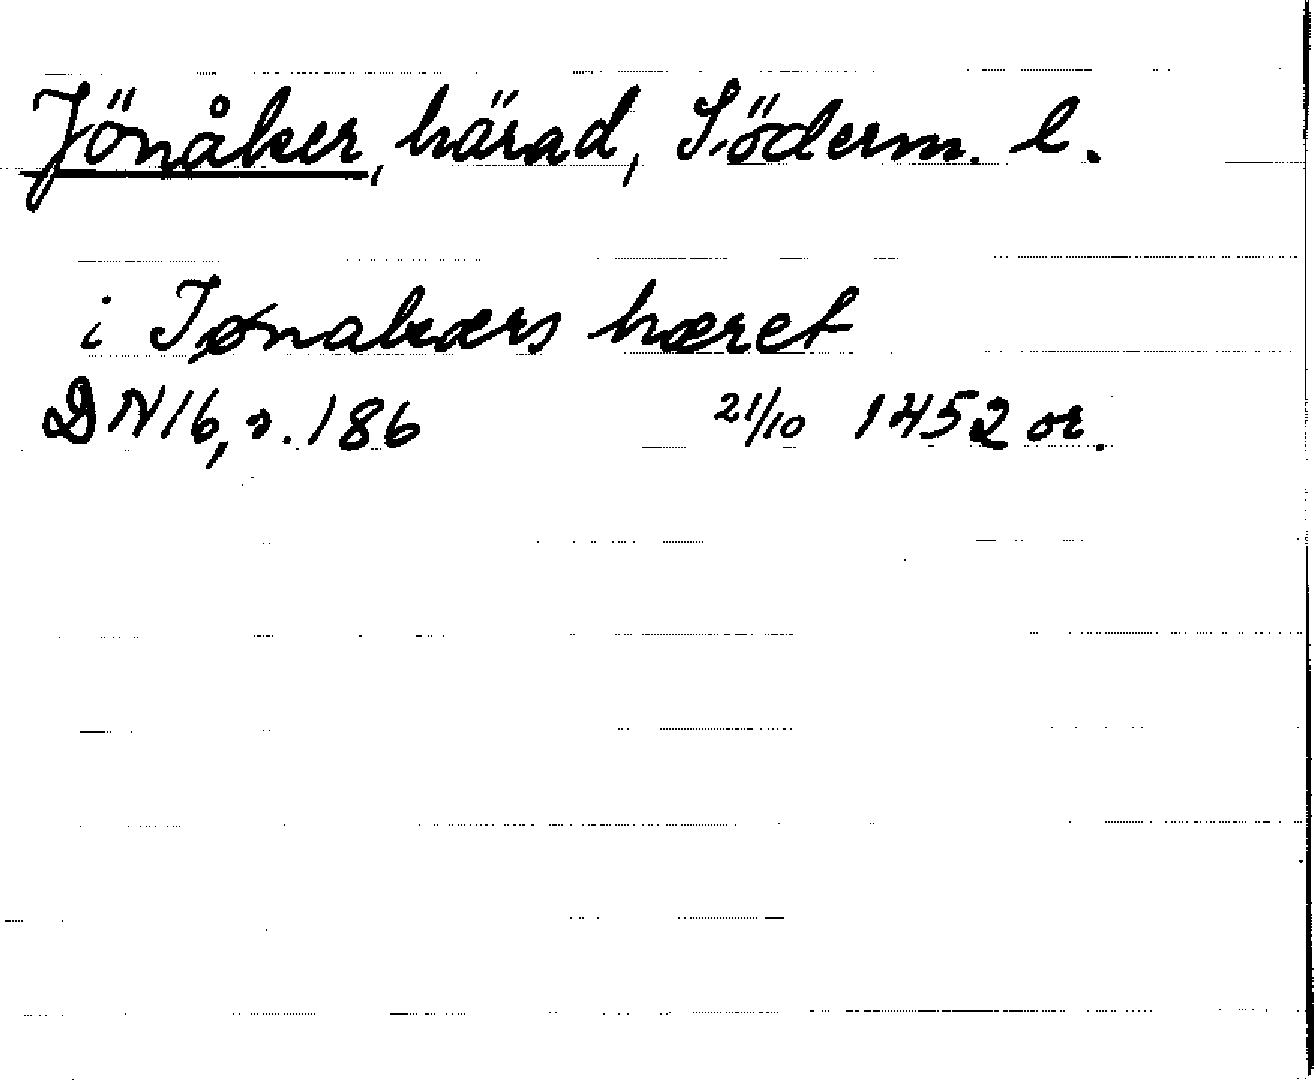 Jönåker, härad, Söderm. l.
i Jønakærs hæret
DN 16, s. 186 21/10 1452 or.